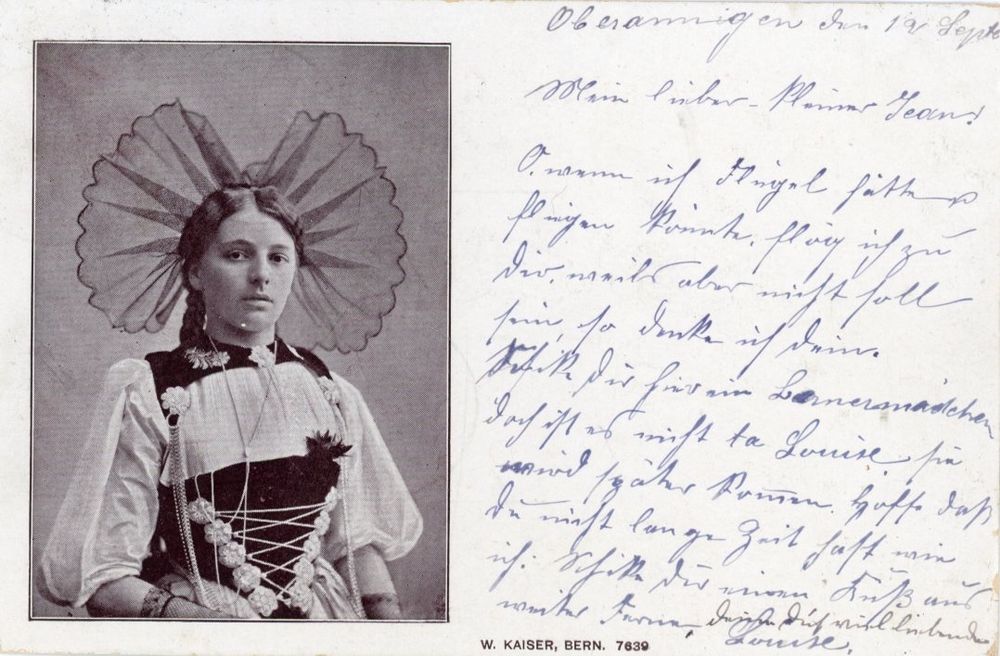 Oberönnigen den 19 Sept
Mein lieber kleiner Jean!
O, wenn ich Flügel hätte u
fliegen könnte, flög ich zu
Dir, weils aber nicht soll
sein, so denke ich dein.
Schike Dir hier ein Bernermädchen
doch ist es nicht ta Louise, sie
wird später kommen. Hoffe daß
du nicht lange Zeit hast wie
ich. Schike Dir einen Kuß aus
weiter Ferne, deine Dich viel liebende
Louise.
W. KAISER, BERN. 7639